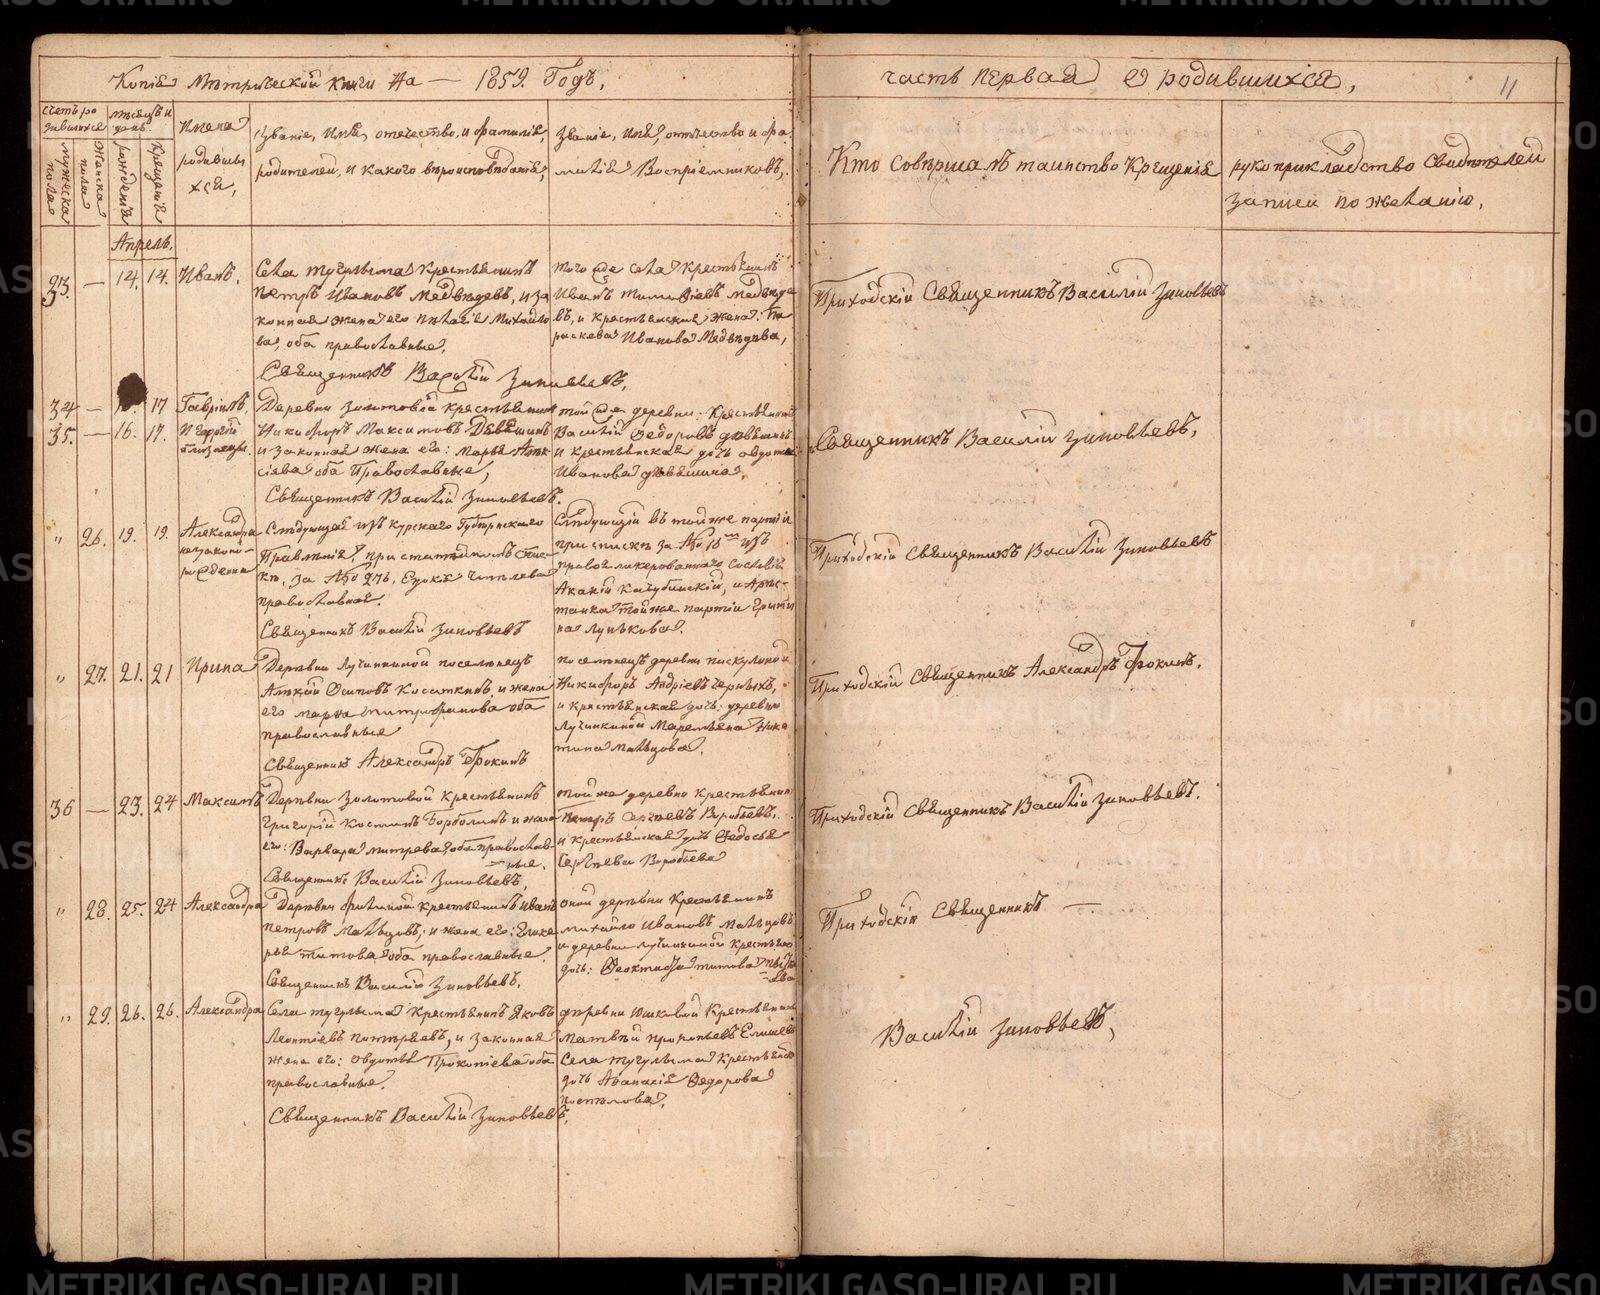 Копія Метрической книги на — 1859. Годъ,
часть первая о родившихся,
11
счетъ ро
дившихся
мѣсяцъ и
день.
мужеска
пола
женска
пола
рожденія
крещенія
Имена
родивших
хся,
Званіе, имя, отечество, и фамилія
родителей, и какого вѣроисповѣданія,
Званіе, имя, отечество и фа
милія Воспріемниковъ,
Кто совершалъ таинство Крещенія
рукоприкладство свидетелей
записи по желанію,
Апрель.
33. — 14. 14. Иванъ.
Села Тугулыма Крестьянинъ
Петръ Ивановъ Медведевъ, и за
конная жена его Пелагія Михайло
ва, оба православные,
Священникъ Василій Зиновьевъ,
того же села крестьянинъ
Иванъ Тимофіевъ Медведе
въ, и крестьянская жена: Па
раскева Иванова Медведева,
Приходскій Священникъ Василій Зиновьевъ
34 — 17 Гавріилъ,
35. — 16. 17. И Георгій
близнецы.
Деревни Золотовой крестьянинъ
Никифоръ Максимовъ
и законная жена его: Марья Алек
сіева оба Православные,
Священникъ Василій Зиновьевъ.
той же деревни Крестьянинъ
Василій Федоровъ
и крестьянская дочь Авдотья
Иванова
Священникъ Василій Зиновьевъ,
" 26. 19. 19. Александра
незаконно-
рожденная
Следующая изъ Курскаго Губернскаго
Правленія, при статейномъ спис
ке, за № 276,
православная.
Священникъ Василій Зиновьевъ
Следующій въ той же партіи
при списке за № изъ
Акакій и Арес-
танка той же партіи
на Лунькова.
Приходскій Священникъ Василій Зиновьевъ
" 27. 21. 21 Ирина
Деревни Лучинкиной поселенецъ
Алексей Осиповъ Косаткинъ, и жена
его Марья Митрофанова оба
православные
Священникъ Александръ Фокинъ
поселенецъ деревни Пискулиной
Никифоръ Андріевъ Черныхъ,
и крестьянская дочь: деревни
Лучинкиной Маремьяна Ники
тина Мальцова,
Приходскій Священникъ Александръ Фокинъ,
36 — 23. 24 Максимъ
Деревни Золотовой Крестьянинъ
Григорій Костинъ Барболинъ и жена
его: Варвара Митрева, оба православ-
ные.
Священникъ Василій Зиновьевъ,
той же деревни крестьянинъ
Петръ Сергеевъ Воробьевъ,
и крестьянская дочь Федосья
Сергеева Воробьева
Приходскій Священникъ Василій Зиновьевъ.
" 28. 25. 24 Александра
Деревни Филиной крестьянинъ Иванъ
Петровъ Мальцовъ, и жена его: Глике
рья Титова оба православные.
Священникъ Василій Зиновьевъ,
оной деревни Крестьянинъ
Михайло Ивановъ Мальцовъ
и деревни Лучинкиной крестьян
дочь: Феоктиста Титова
Приходскій Священникъ —
" 29. 26. 26. Александра
Села Тугулыма Крестьянинъ Яковъ
Леонтіевъ Потеряевъ, и законная
жена его: Овдотья Прокопіева оба
православные.
Священникъ Василій Зиновьевъ,
деревни Юшковой Крестьянинъ
Матвей Прокопьевъ
Села Тугулыма Крестьянск
дочь Афанасія Федорова
Поспелова,
Василій Зиновьевъ,
METRIKI.GASO-URAL.RU